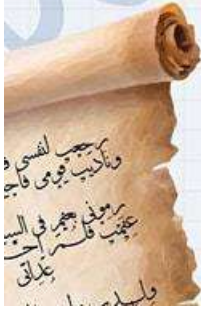 رجعت لنفسي ف
وناديت قومي فاحت
رموني بعقم في الشب
عقمت فلم أجز
عداتي
ولدت